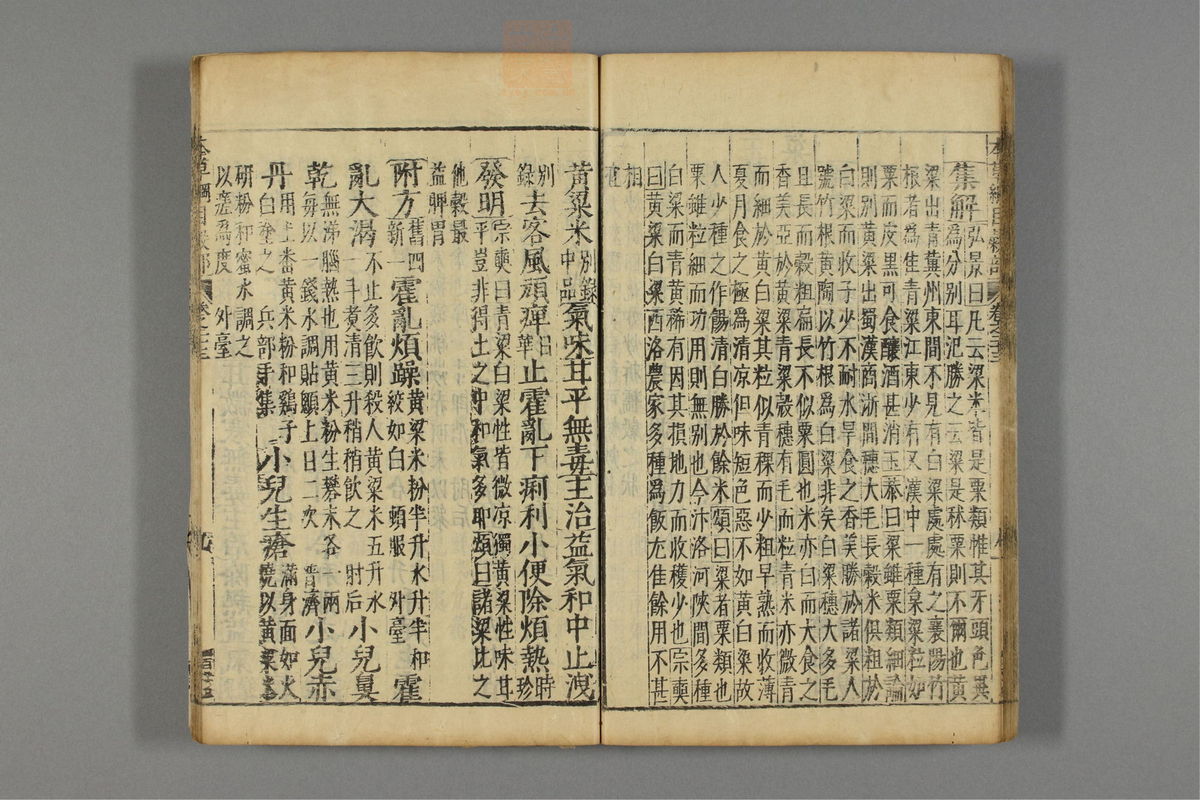 本草綱目穀部 卷之二十三 九
集解弘景曰凡云粱米皆是粟類惟其牙頭色異
爲分別耳氾勝之云粱是秫粟則不爾也黃
粱出青冀州東間不見有白粱處處有之襄陽竹
根者爲佳青粱江東少有又漢中一種枲粱粒如
粟而皮黑可食釀酒甚消玉恭曰粱雖粟類細論
則別黃粱出蜀漢商浙間穗大毛長穀米俱粗於
白粱而收子少不耐水旱食之香美勝於諸粱人
號竹根黃陶以竹根爲白粱非矣白粱穗大多毛
且長而穀粗扁長不似粟圓也米亦白而大食之
香美亞於黃粱青粱穀穗有毛而粒青米亦微青
而細於黃白粱其粒似青稞而少粗早熟而收薄
夏月食之極爲清凉但味短色惡不如黃白粱故
人少種之作餳清白勝於餘米頌曰粱者粟類也
粟雖粒細而功用則無別也今汴洛河陝間多種
白粱而青黃稀有因其損地力而收穫少也宗奭
曰黃粱白粱西洛農家多種爲飯尤佳餘用不甚
相宜
黃粱米別錄中品氣味甘平無毒主治益氣和中止洩
別錄去客風頑痺日華止霍亂下痢利小便除煩熱時珍
發明宗奭曰青粱白粱性皆微凉獨黃粱性味甘
平豈非得土之中和氣多耶頌曰諸粱比之
他穀最
益脾胃
附方舊四新一霍亂煩躁黃粱米粉半升水升半和
絞如白飲頓服 外臺霍
亂大渴不止多飲則殺人黃粱米五升水
一斗煮清三升稍稍飲之 肘后小兒鼻
乾無涕腦熱也用黃米粉生礬末各一兩
每以一錢水調貼顖上日二次 普濟小兒赤
丹用土番黃米粉和鷄子
白塗之 兵部手集小兒生瘡滿身面如火
燒以黃粱米一
研粉和蜜水調之
以瘥爲度 外臺
本草綱目穀部 卷之二十三